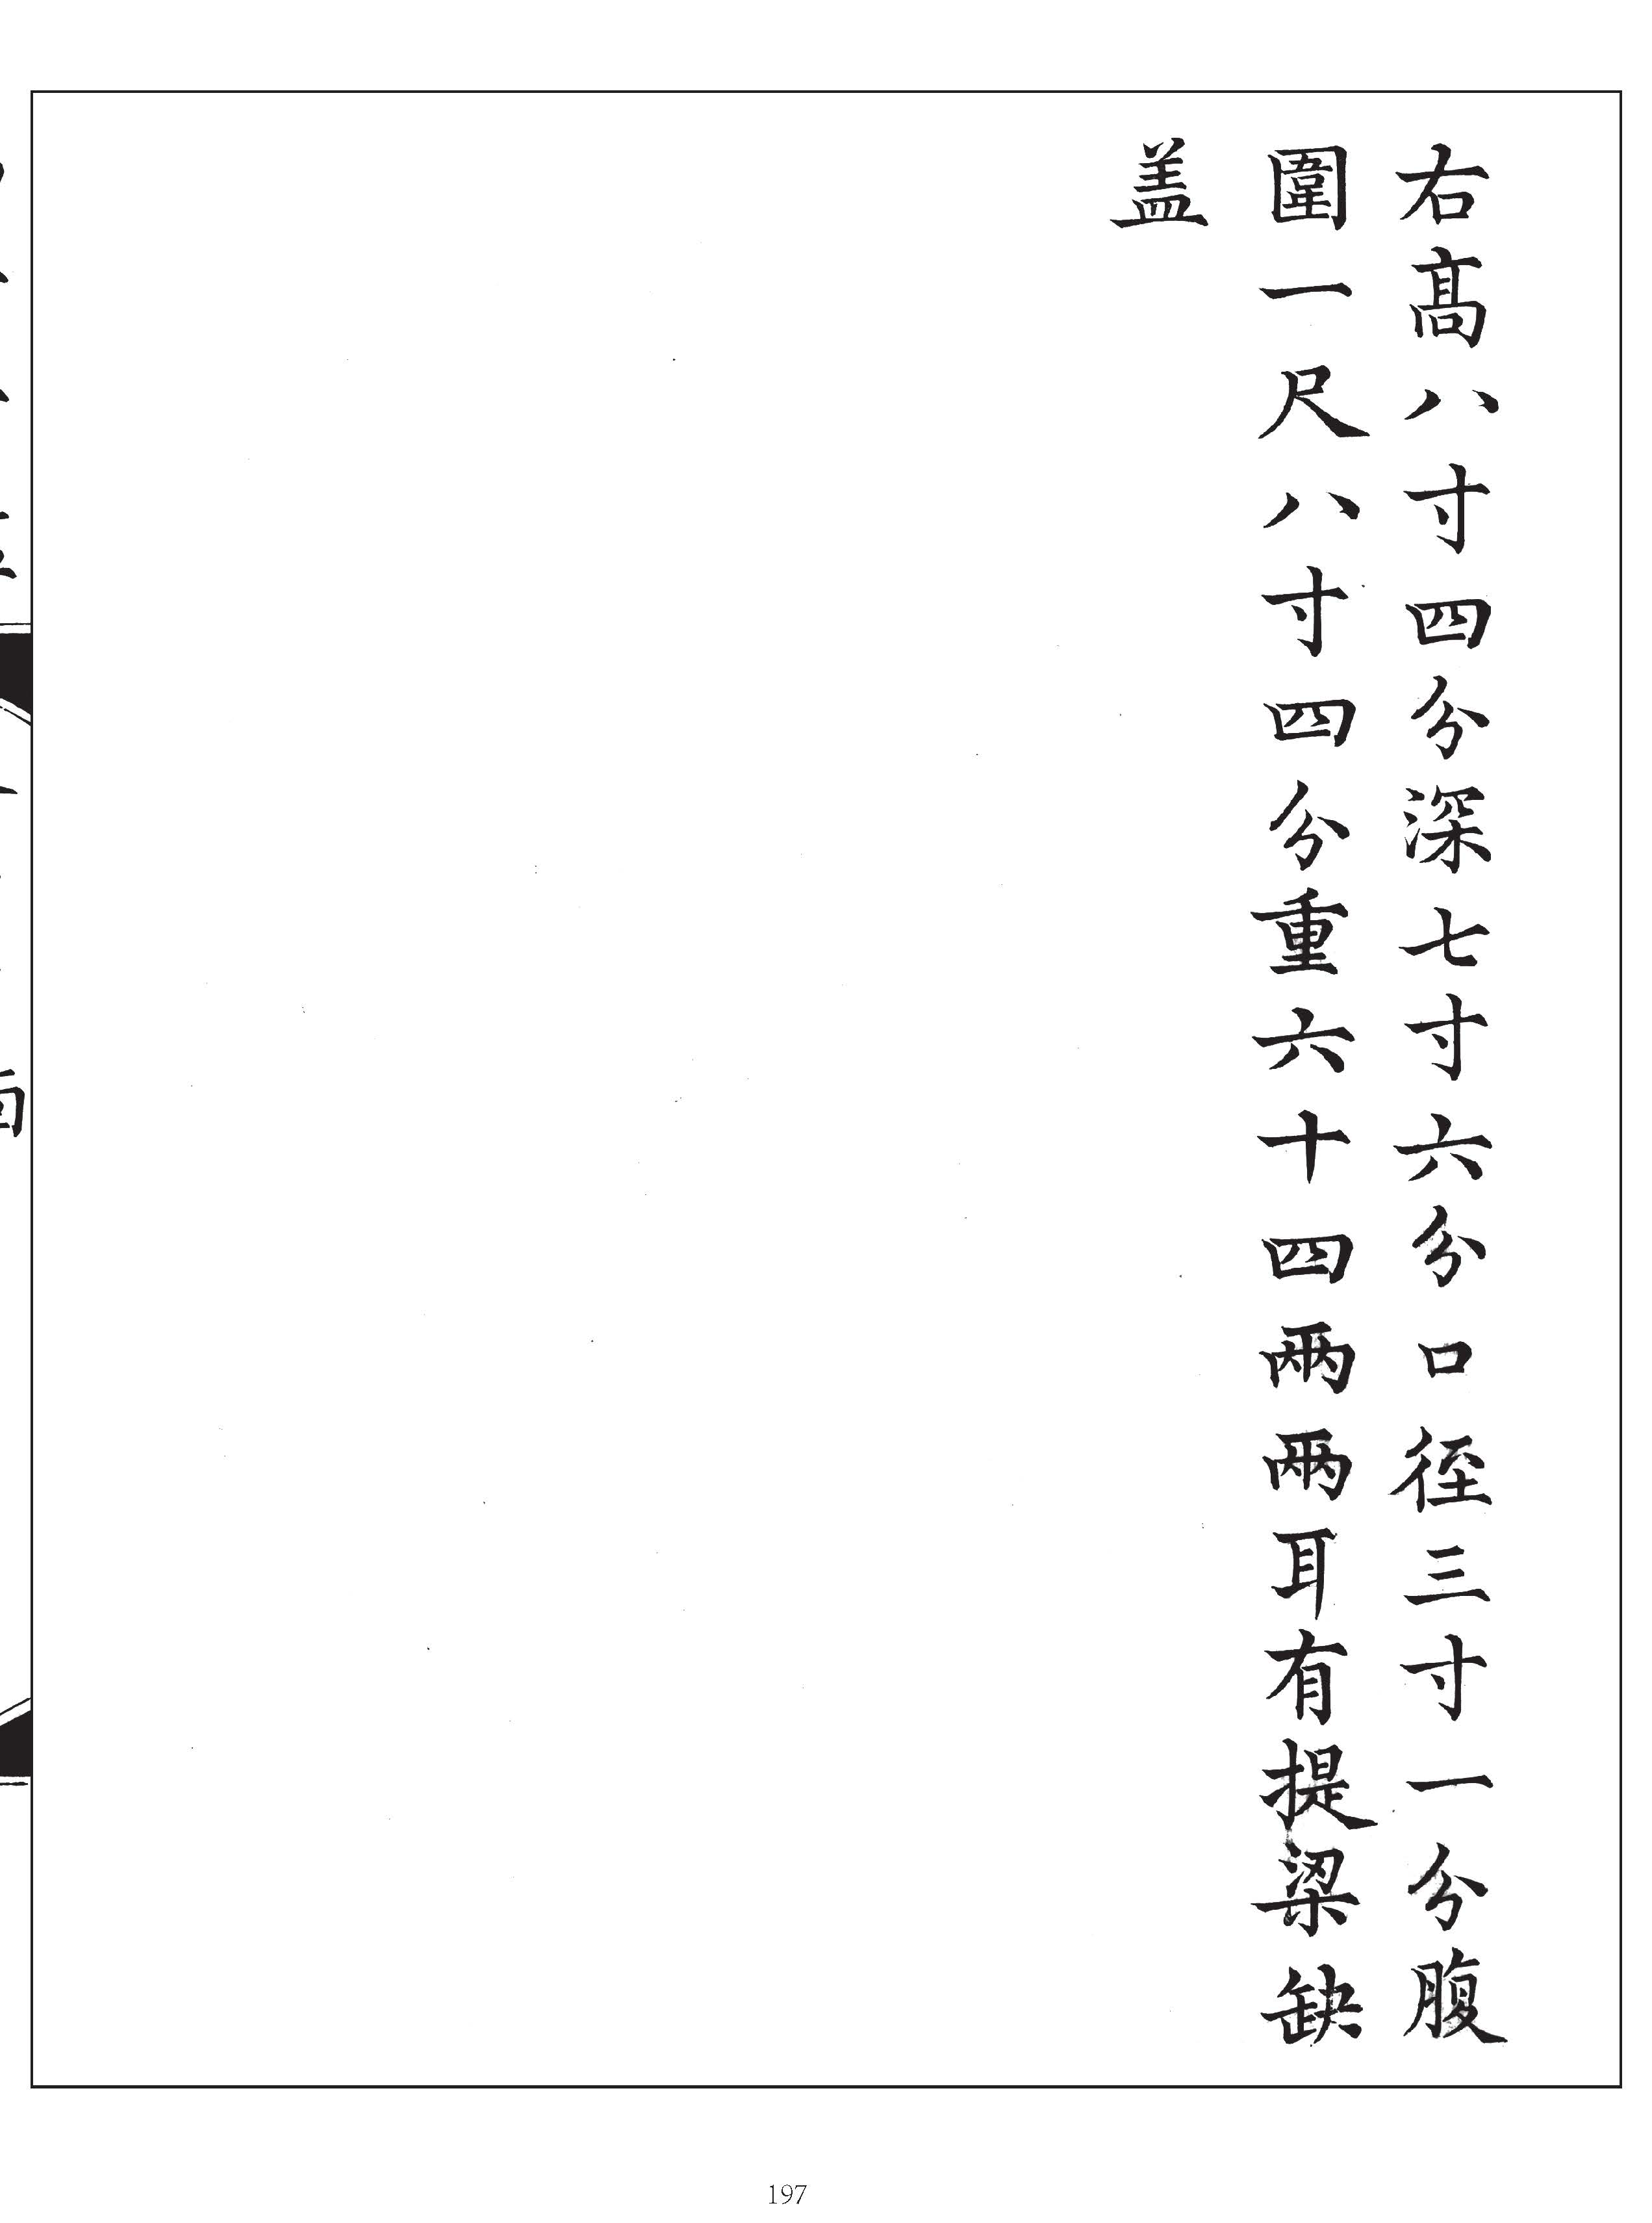 右髙八寸四分深七寸六分口徑三寸一分腹
圍一尺八寸四分重六十四兩兩耳有提梁缺
盖
197